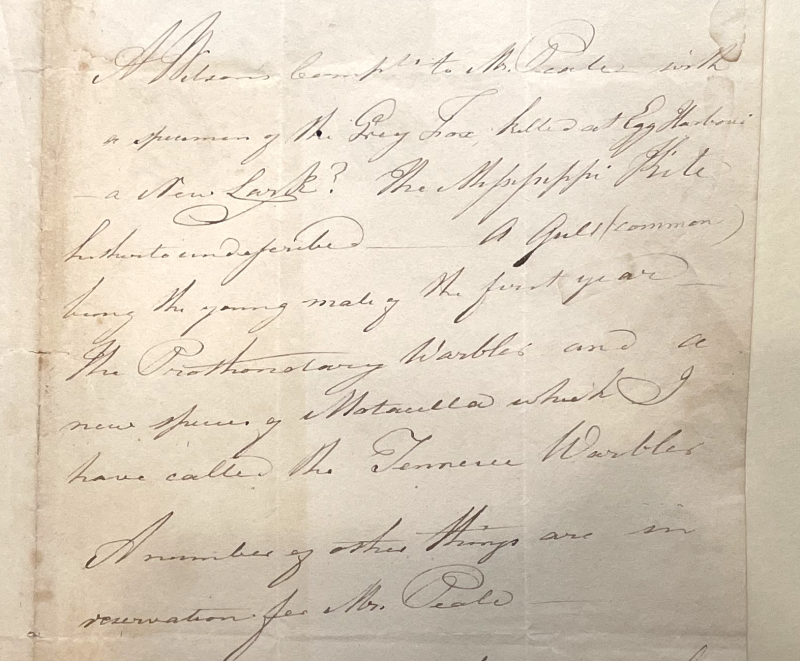 A Wilson's Compts to Mr. Peale with
a specimen of the Grey Fox, killed at Egg Harbour
— a New Lark? The Mississippi Kite
hitherto undescribed — A Gull (common)
being the young male of the first year —
the Prothonotary Warbler and a
new species of Motacilla which I
have called the Tennesee Warbler
A number of other things are in
reservation for Mr. Peale —